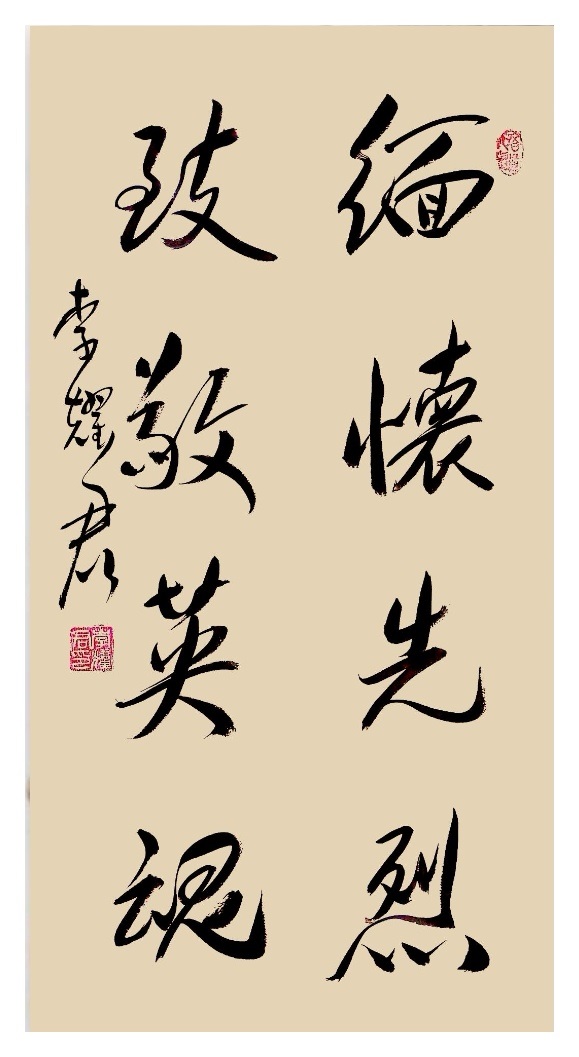 緬懷先烈
致敬英魂
李耀君